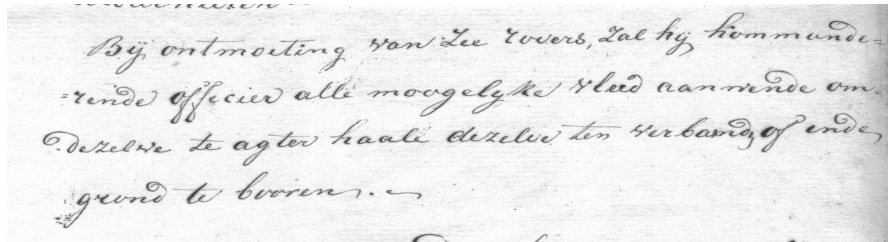 Bij ontmoeting van Zee rovers, Zal hij kommande=
=rende officier alle moogelyke vleed aanwende om
dezelve te agter haale dezelve ten verband, of ende
grond te booren.